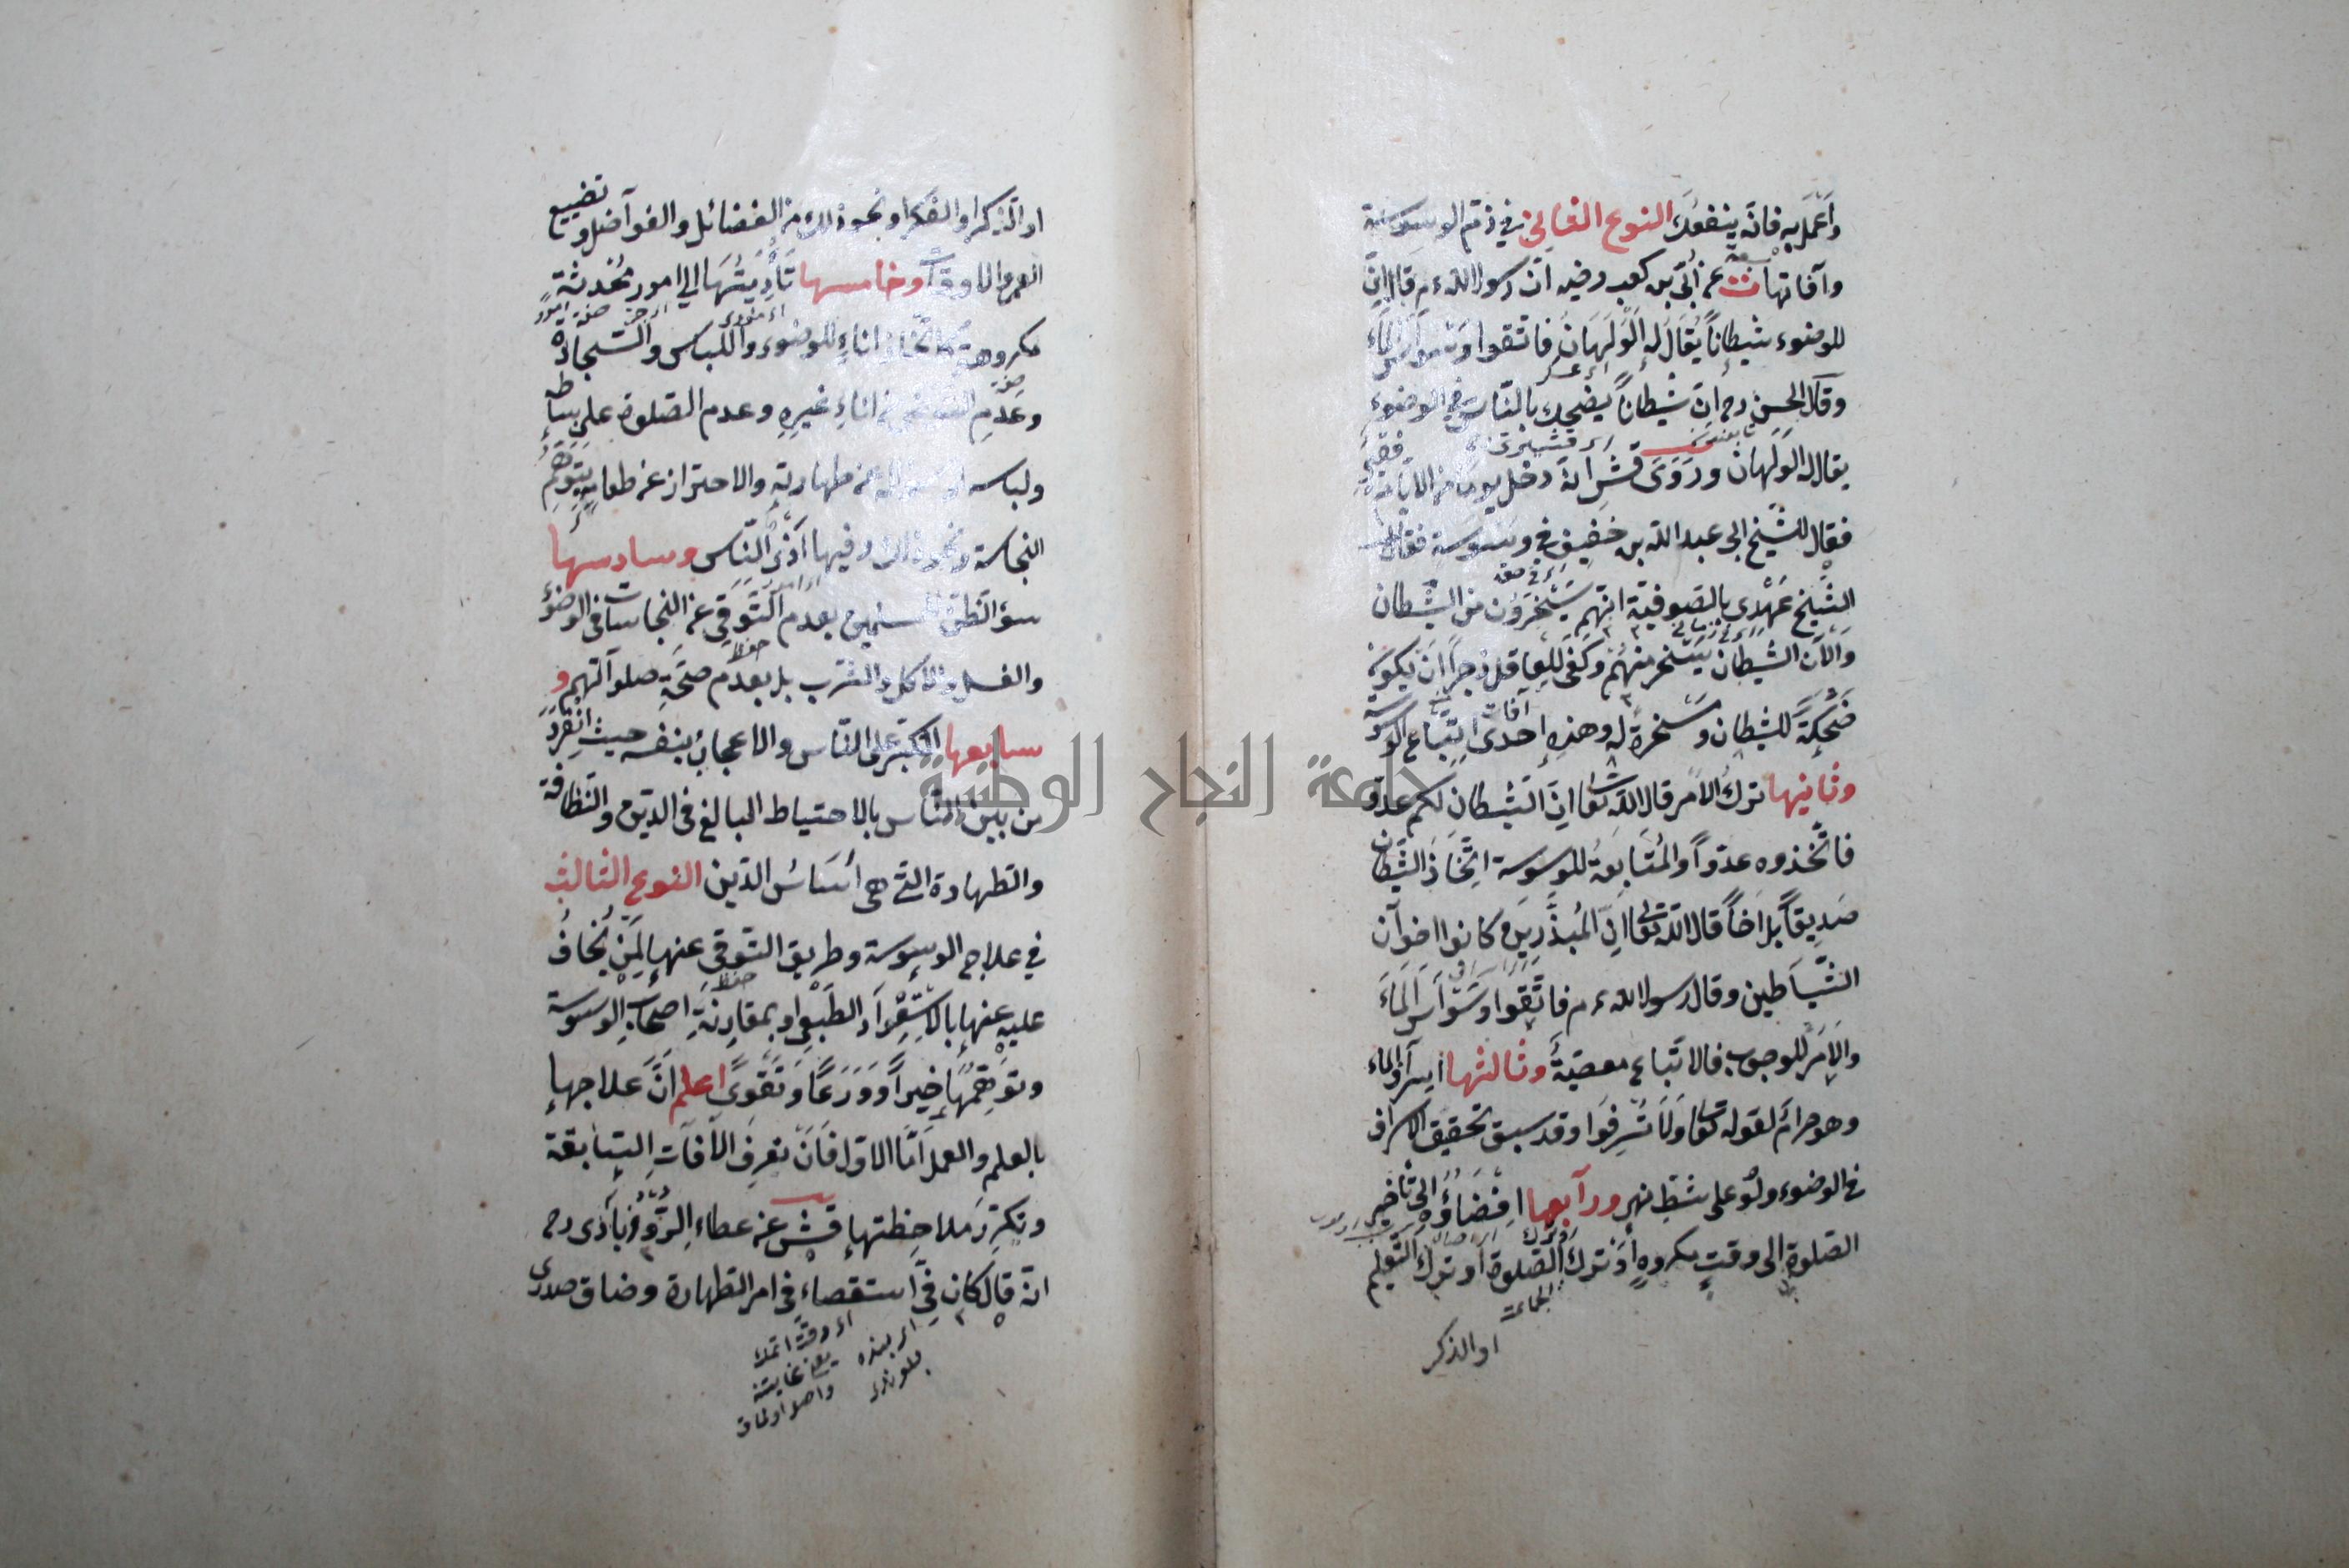 وَاعْمَل به فانّه ينفعُك النوع الثاني في ذمّ الوسوسة
وآفاتها ت عن أبيّ بن كعب رضيه انّ رسول الله ءم قال انّ
للوضوء شيطاناً يُقَالُ له الوَلَهَانُ فاتّقوا وَسْوَاسَ الماء
وقال الحسن رح انّ شيطاناً يضحك بالنّاس في الوضوء
يقال له الوَلهان وَرَوَى قش انّه دخل يوماً من الايّام فقير
فقال للشّيخ ابى عبد الله بن خفيف في وسوسة فقال
الشّيخ عَهْدِى بالصّوفيّة انّهم يَسْخَرُون من الشّيطان
وَالآن الشيطان يَسْخر منهُمْ وكفى للعاقل زجراً ان يكونَ
ضُحْكةً للشّيطان ومَسْخرةً له وهذه إحدى آفات اتّباع الوسوسة
وثانيها ترك الامر قال اللّه تعا انّ الشيطان لكم عدوّ
فاتّخذوه عدوّاً والمُتَابَعةُ للوسوسة اتّخَاذ الشّيطان
صَدِيقاً بل اخاً قال اللّه تعالى انّ المُبَذِّرِينَ كانوا اخوآن
الشّيَاطين وقال رسول الله ءم فاتّقوا وَسْوَاسَ المَاءَ
والامرُ للوجوب فالاتّباع معصيةٌ وثالثها اسرآف الماء
وهو حرامٌ لقوله تعا وَلَا تُسْرِفُوا وقد سبق تحقيق الاسراف
في الوضوء ولو على شطّ نهرٍ ورآبعها افضَاؤُه الى تأخير
الصّلوة الى وقتٍ مكروهٍ أو ترك الصّلوة او ترك التّعليم
الجماعة
او الذكر
او الذّكر او الفكر او نحو ذلك من الفضائل والفوآضل وتضييع
العمر والاوقات وخامسها تَأدِيَتُهَا الى امورٍ مُحْدثةٍ
مكروهةٍ كاتّخاذ اناءٍ للوضوء واللّباس والسّجادة
وعَدَمِ التوضّى من اناءِ غيرِهِ وعدم الصّلوة على بساط
ولباسه طهارته والاحتراز عن طعامِهِ يتوهّم
النجاسة ونحو ذلك وفيها أذى النّاس وسادسها
سوء الظنّ للمسلمين بعدم التّوَقِّى عن النجاسات في الوضوء
والغسل والاكل والشرب بل بعدم صحّة صلوآتهم و
سابعها التكبّر على النّاس والاعجاب بنفسه حيث انفردَ
من بين النّاس بالاحتياط البالغ في الدّين والنّظافة
والطّهارة التى هى أسَاسُ الدّين النوع الثالث
في علاج الوسوسة وطريق التّوقى عنها لِمَنْ يُخافُ
عليه عنها بالاستقرآر الطّبعى او بمقارنة اصحاب الوسوسة
وتوهّمها خيراً وَوَرَعًا وَتَقْوىً اعلم انّ علاجها
بالعلم والعمل امّا الاوّل فَانْ تعرف الآفات السّابقة
وتكرّر ملاحظتها قش عن عطاء الرُّوذبَادى رح
انّه قال كان فىّ استقصاء في امر الطّهارة وضاق صدرى
جامعة النجاح الوطنية